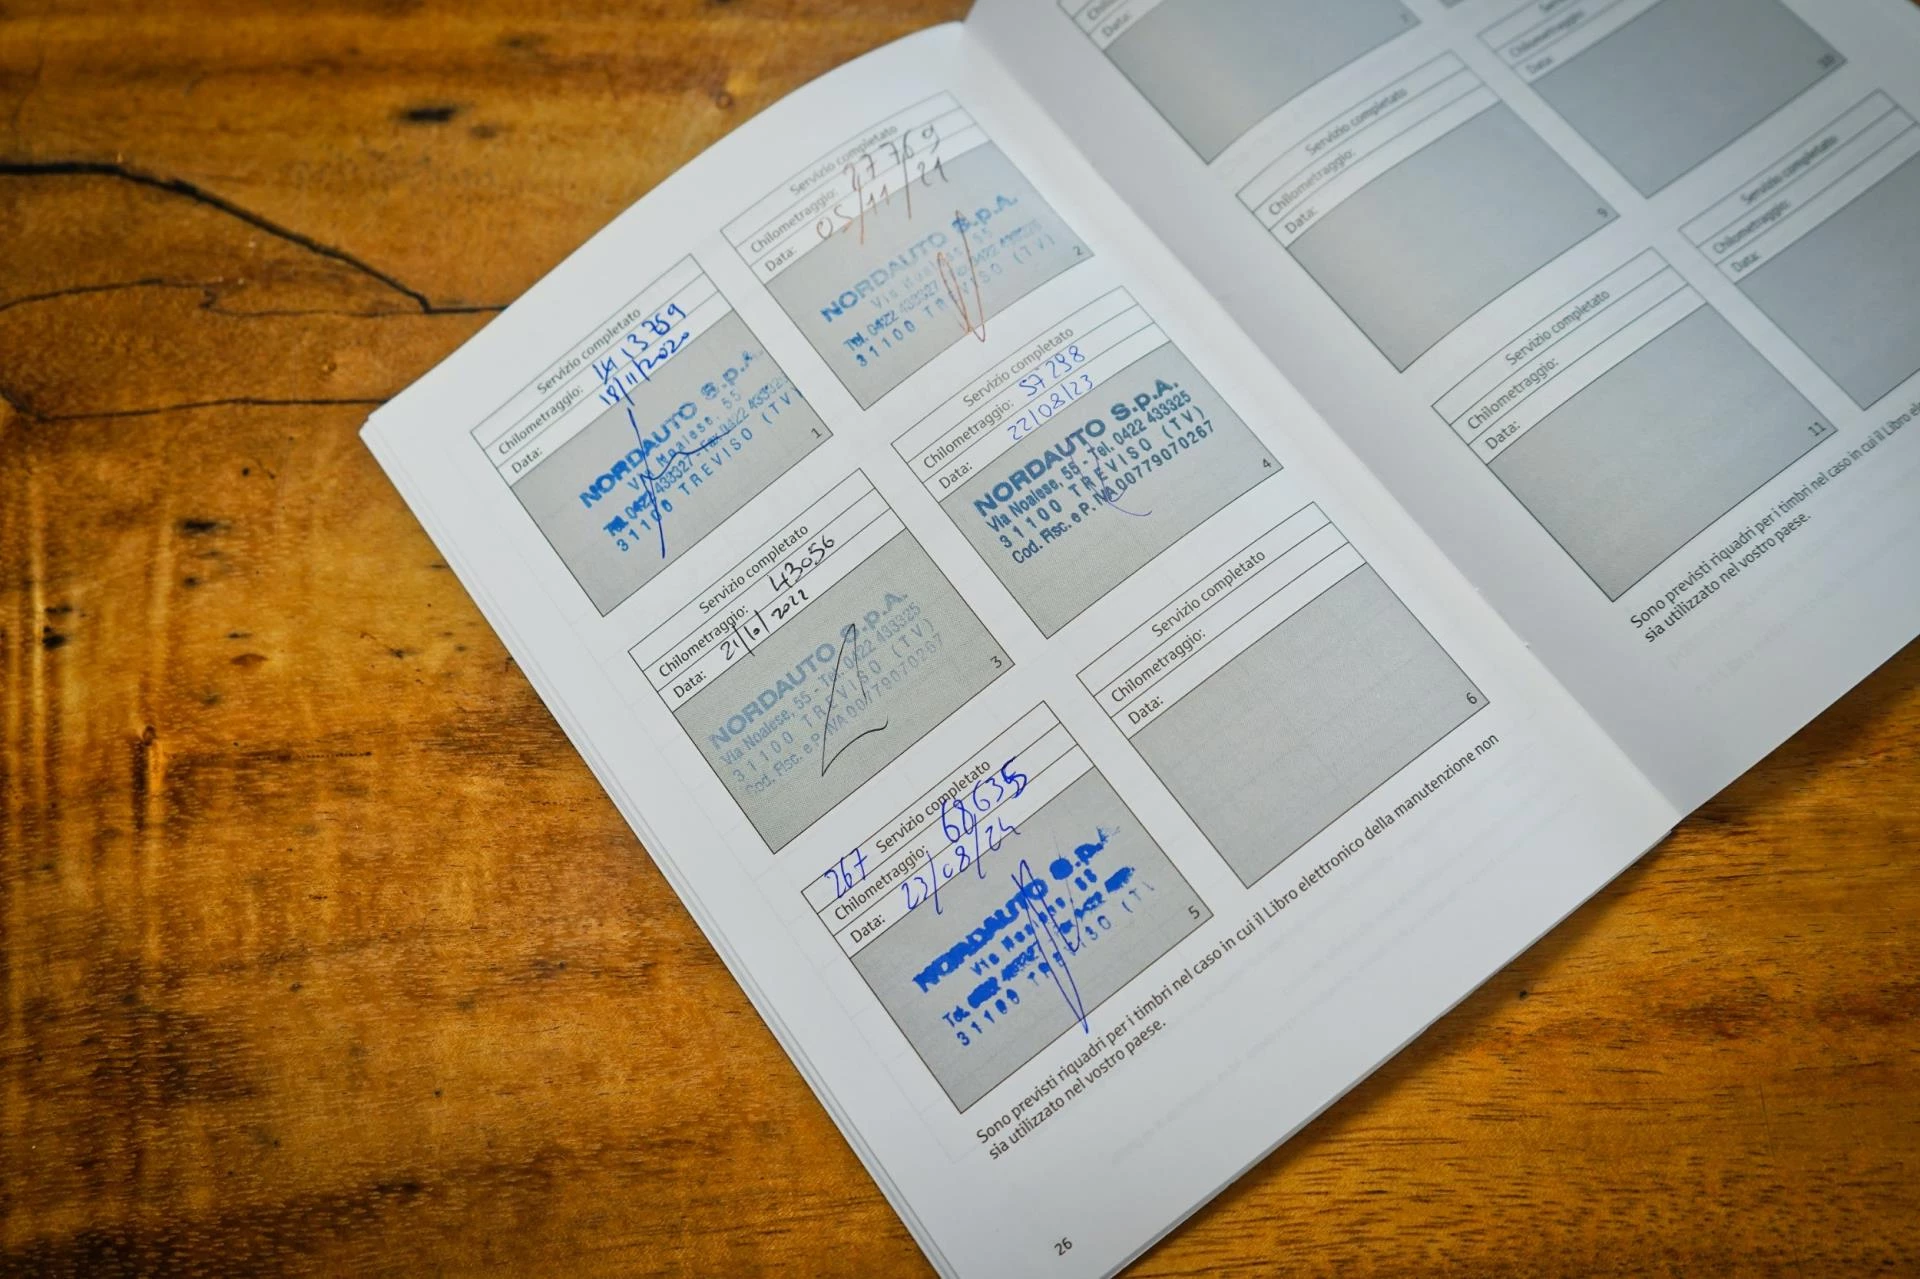 Servizio completato
Chilometraggio: 13759
Data: 18/11/2020
NORDAUTO S.p.A.
Via Noalese, 55
Tel. 0422 433327 - Fax 0422 433325
31100 TREVISO (TV)
1
Servizio completato
Chilometraggio: 27769
Data: 05/11/21
NORDAUTO S.p.A.
Via Noalese, 55
Tel. 0422 433327 Fax 0422 433325
31100 TREVISO (TV)
2
Servizio completato
Chilometraggio: 43056
Data: 21/10/2022
NORDAUTO S.p.A.
Via Noalese, 55 - Tel. 0422 433325
31100 TREVISO (TV)
Cod. Fisc. e P. IVA 00779070267
3
Servizio completato
Chilometraggio: 57298
Data: 22/08/23
NORDAUTO S.p.A.
Via Noalese, 55 - Tel. 0422 433325
31100 TREVISO (TV)
Cod. Fisc. e P. IVA 00779070267
4
267 Servizio completato
Chilometraggio: 68635
Data: 23/08/24
NORDAUTO S.p.A.
Via Noalese
Tel. 0422
31100 TREVISO (T
5
Servizio completato
Chilometraggio:
Data:
6
Sono previsti riquadri per i timbri nel caso in cui il Libro elettronico della manutenzione non
sia utilizzato nel vostro paese.
26
Data:
7
Servizio completato
Chilometraggio:
Data:
9
Chilometraggio:
Data:
10
Servizio completato
Chilometraggio:
Data:
11
Servizio completato
Chilometraggio:
Data:
Sono previsti riquadri per i timbri nel caso in cui il Libro
sia utilizzato nel vostro paese.